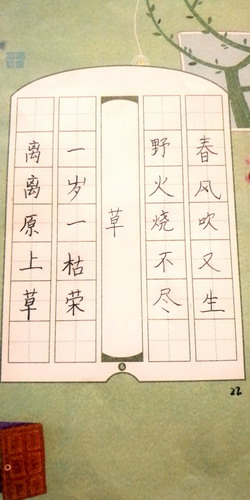 离离原上草
一岁一枯荣
草
野火烧不尽
春风吹又生
22